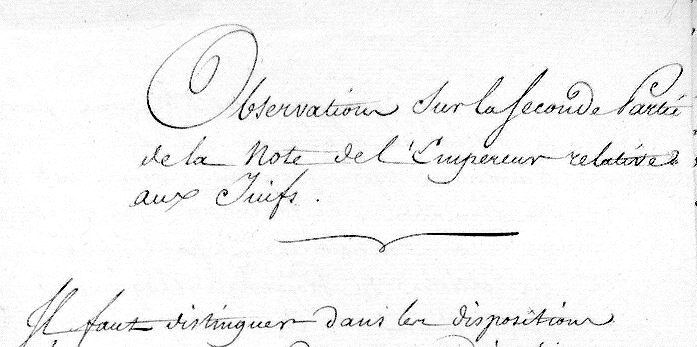 Observations sur la Seconde Partie
de la Note de l'Empereur relative
aux Juifs.
Il faut distinguer dans les dispositions